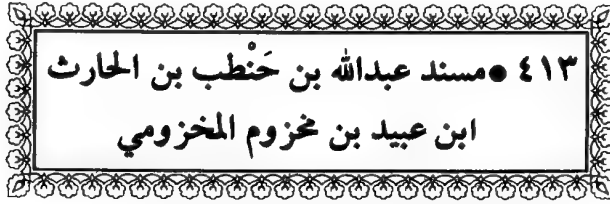 ٤١٣ ● مسند عبدالله بن حَنْطب بن الحارث
ابن عبيد بن مخزوم المخزومي